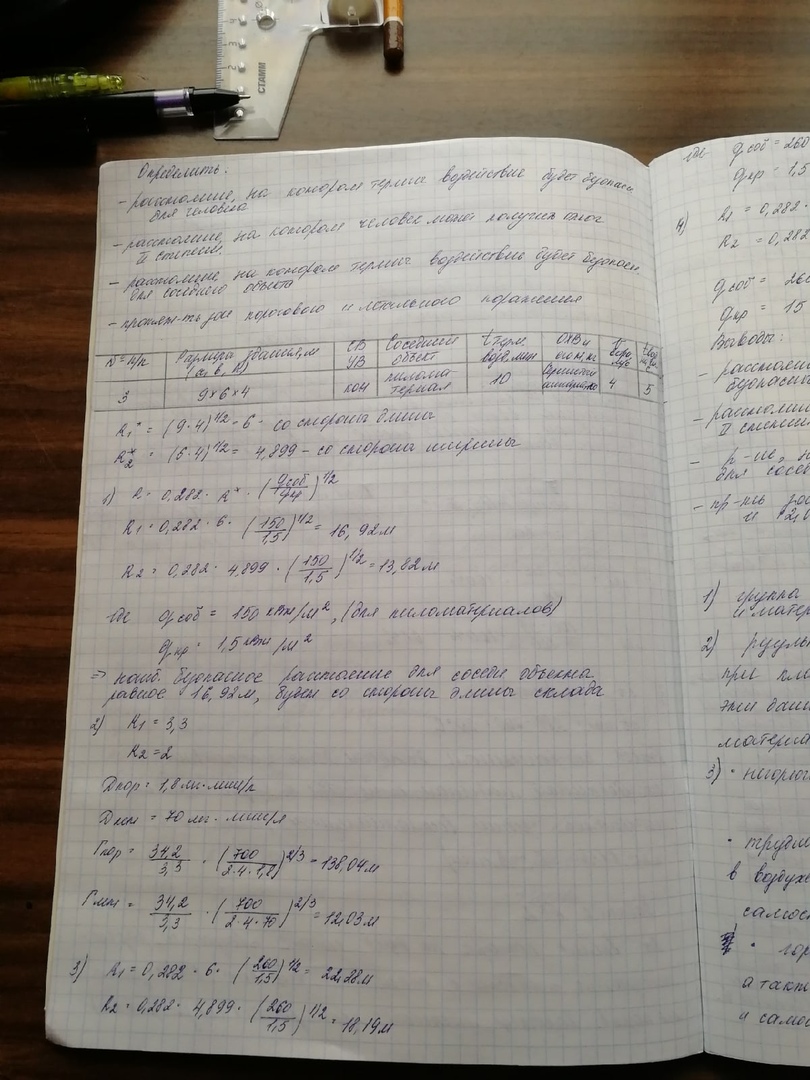 СТАММ
Определить:
- расстояние, на котором термич воздействие будет безопасн
для человека
- расстояние, на котором человек может получить ожог
II степени
- расстояние, на котором термич воздействие будет безопасн
для соседнего объекта
- протяж-ть зон порогового и летального поражения
N= п/п Размеры здания, м (a, b, h) СВ УВ Соседний объект t терм. возд. мин ОХВ и
3 9×6×4 кон пиломатериал 10 4 5
R₁* = (9·4)^1/2 = 6 - со стороны длины
R₂* = (6·4)^1/2 = 4,899 - со стороны ширины
1) R = 0,282 · R* · (qсоб/qкр)^1/2
R₁ = 0,282 · 6 · (150/1,5)^1/2 = 16,92м
R₂ = 0,282 · 4,899 · (150/1,5)^1/2 = 13,82м
где qсоб = 150 кВт/м², (для пиломатериалов)
qкр = 1,5 кВт/м²
=> наиб. безопасное расстояние для соседн объекта
равное 16,92м, будет со стороны длины склада
2) K₁ = 3,3
K₂ = 2
Dпор = 1,8 мг·мин/л
= 70 мг · мин/л
Гпор = 34,2/3,3 · (700/2·4·1,8)^2/3 = 138,04м
= 34,2/3,3 · (700/2·4·70)^2/3 = 12,03м
3) R₁ = 0,282 · 6 · (260/1,5)^1/2 = 22,28м
R₂ = 0,282 · 4,899 · (260/1,5)^1/2 = 18,19м
где qсоб = 260
qкр = 1,5
4) R₁ = 0,282 ·
R₂ = 0,282
qсоб = 260
qкр = 15
Выводы:
- расстоян
безопасн
- расстояни
II степени
- р-ие, н
для сосе
- пр-ть зо
и 12,0
1) группа
и матер
2)
при
эти данн
материа
3) · негорюч
· трудно
в воздухе
самос
· гор
а такж
и само